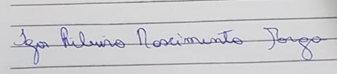 Igor Ribeiro Nascimento Jorge